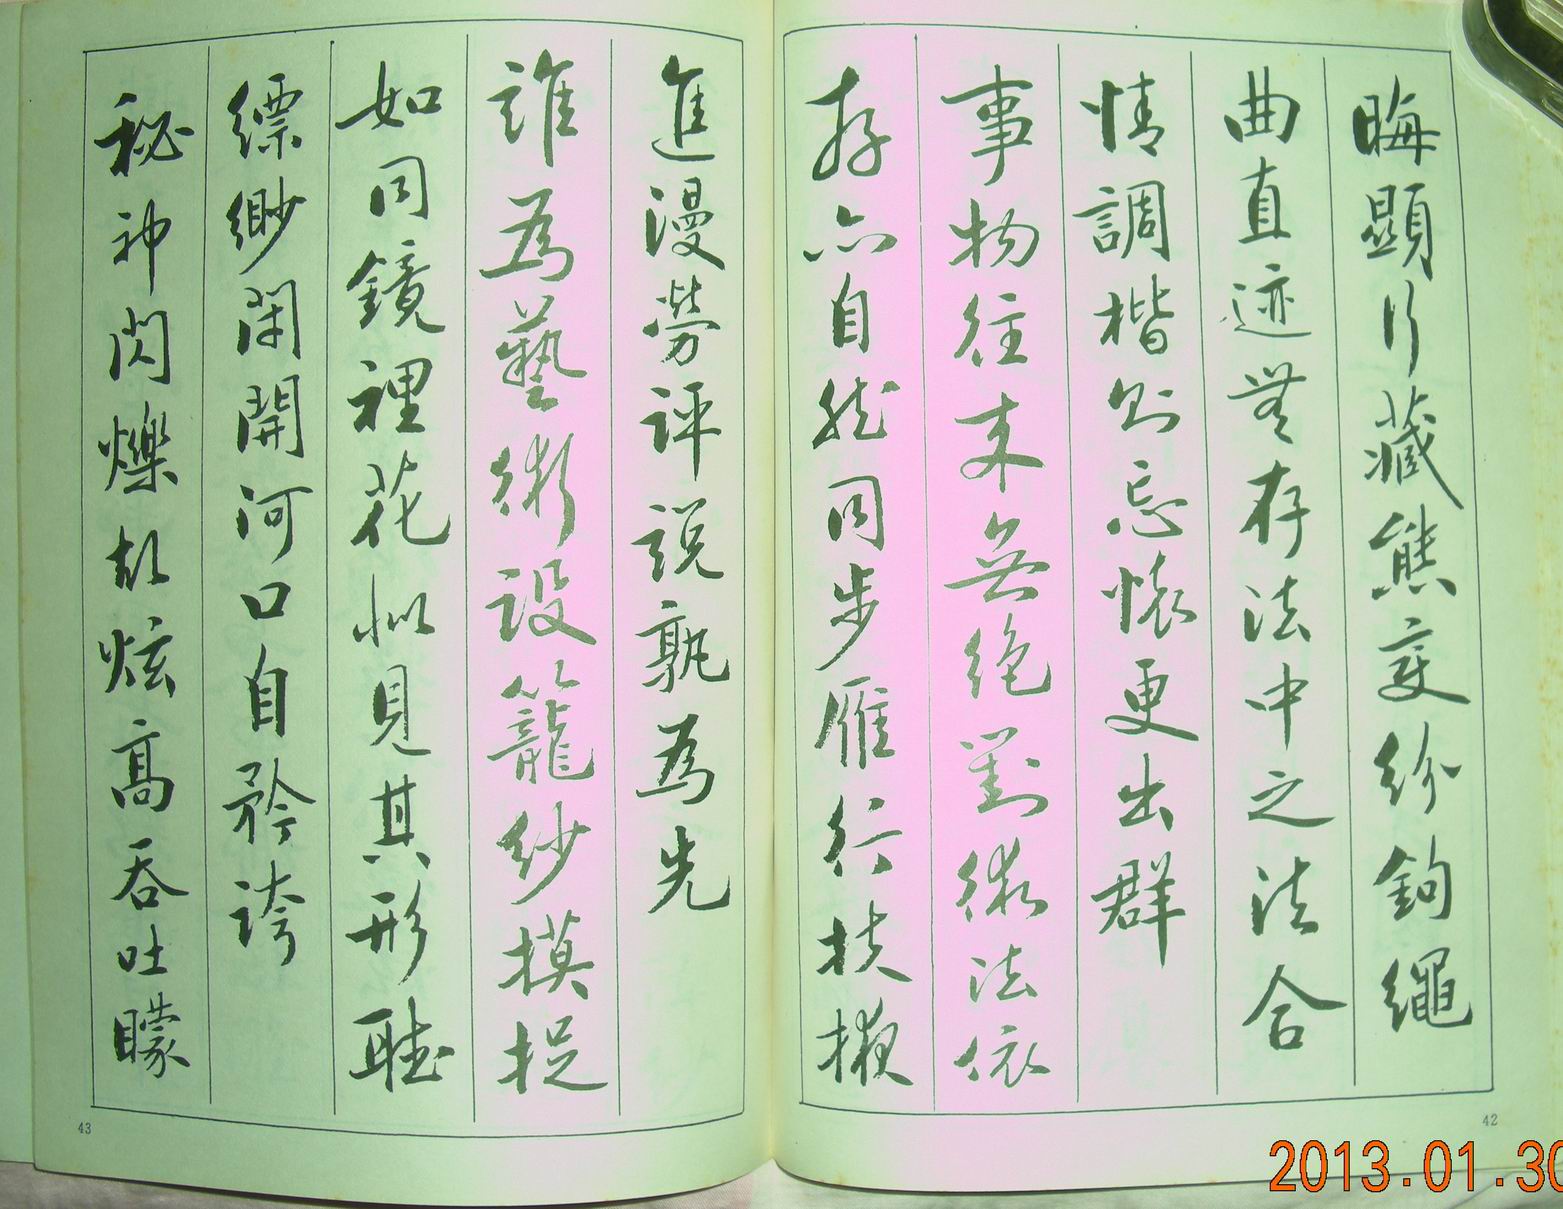 晦顯行藏態度紛鉤繩
曲直迹無存法中之法合
情調楷則忘懷更出群
事物往来無絕對衡法依
存亦自然同步雁行扶掖
進漫勞評説孰為先
誰為藝術設籠紗摸捉
如同鏡裡花似見其形聴
縹緲閑開河口自矜誇
秘神閃爍故炫高吞吐矇
42
43
2013.01.30